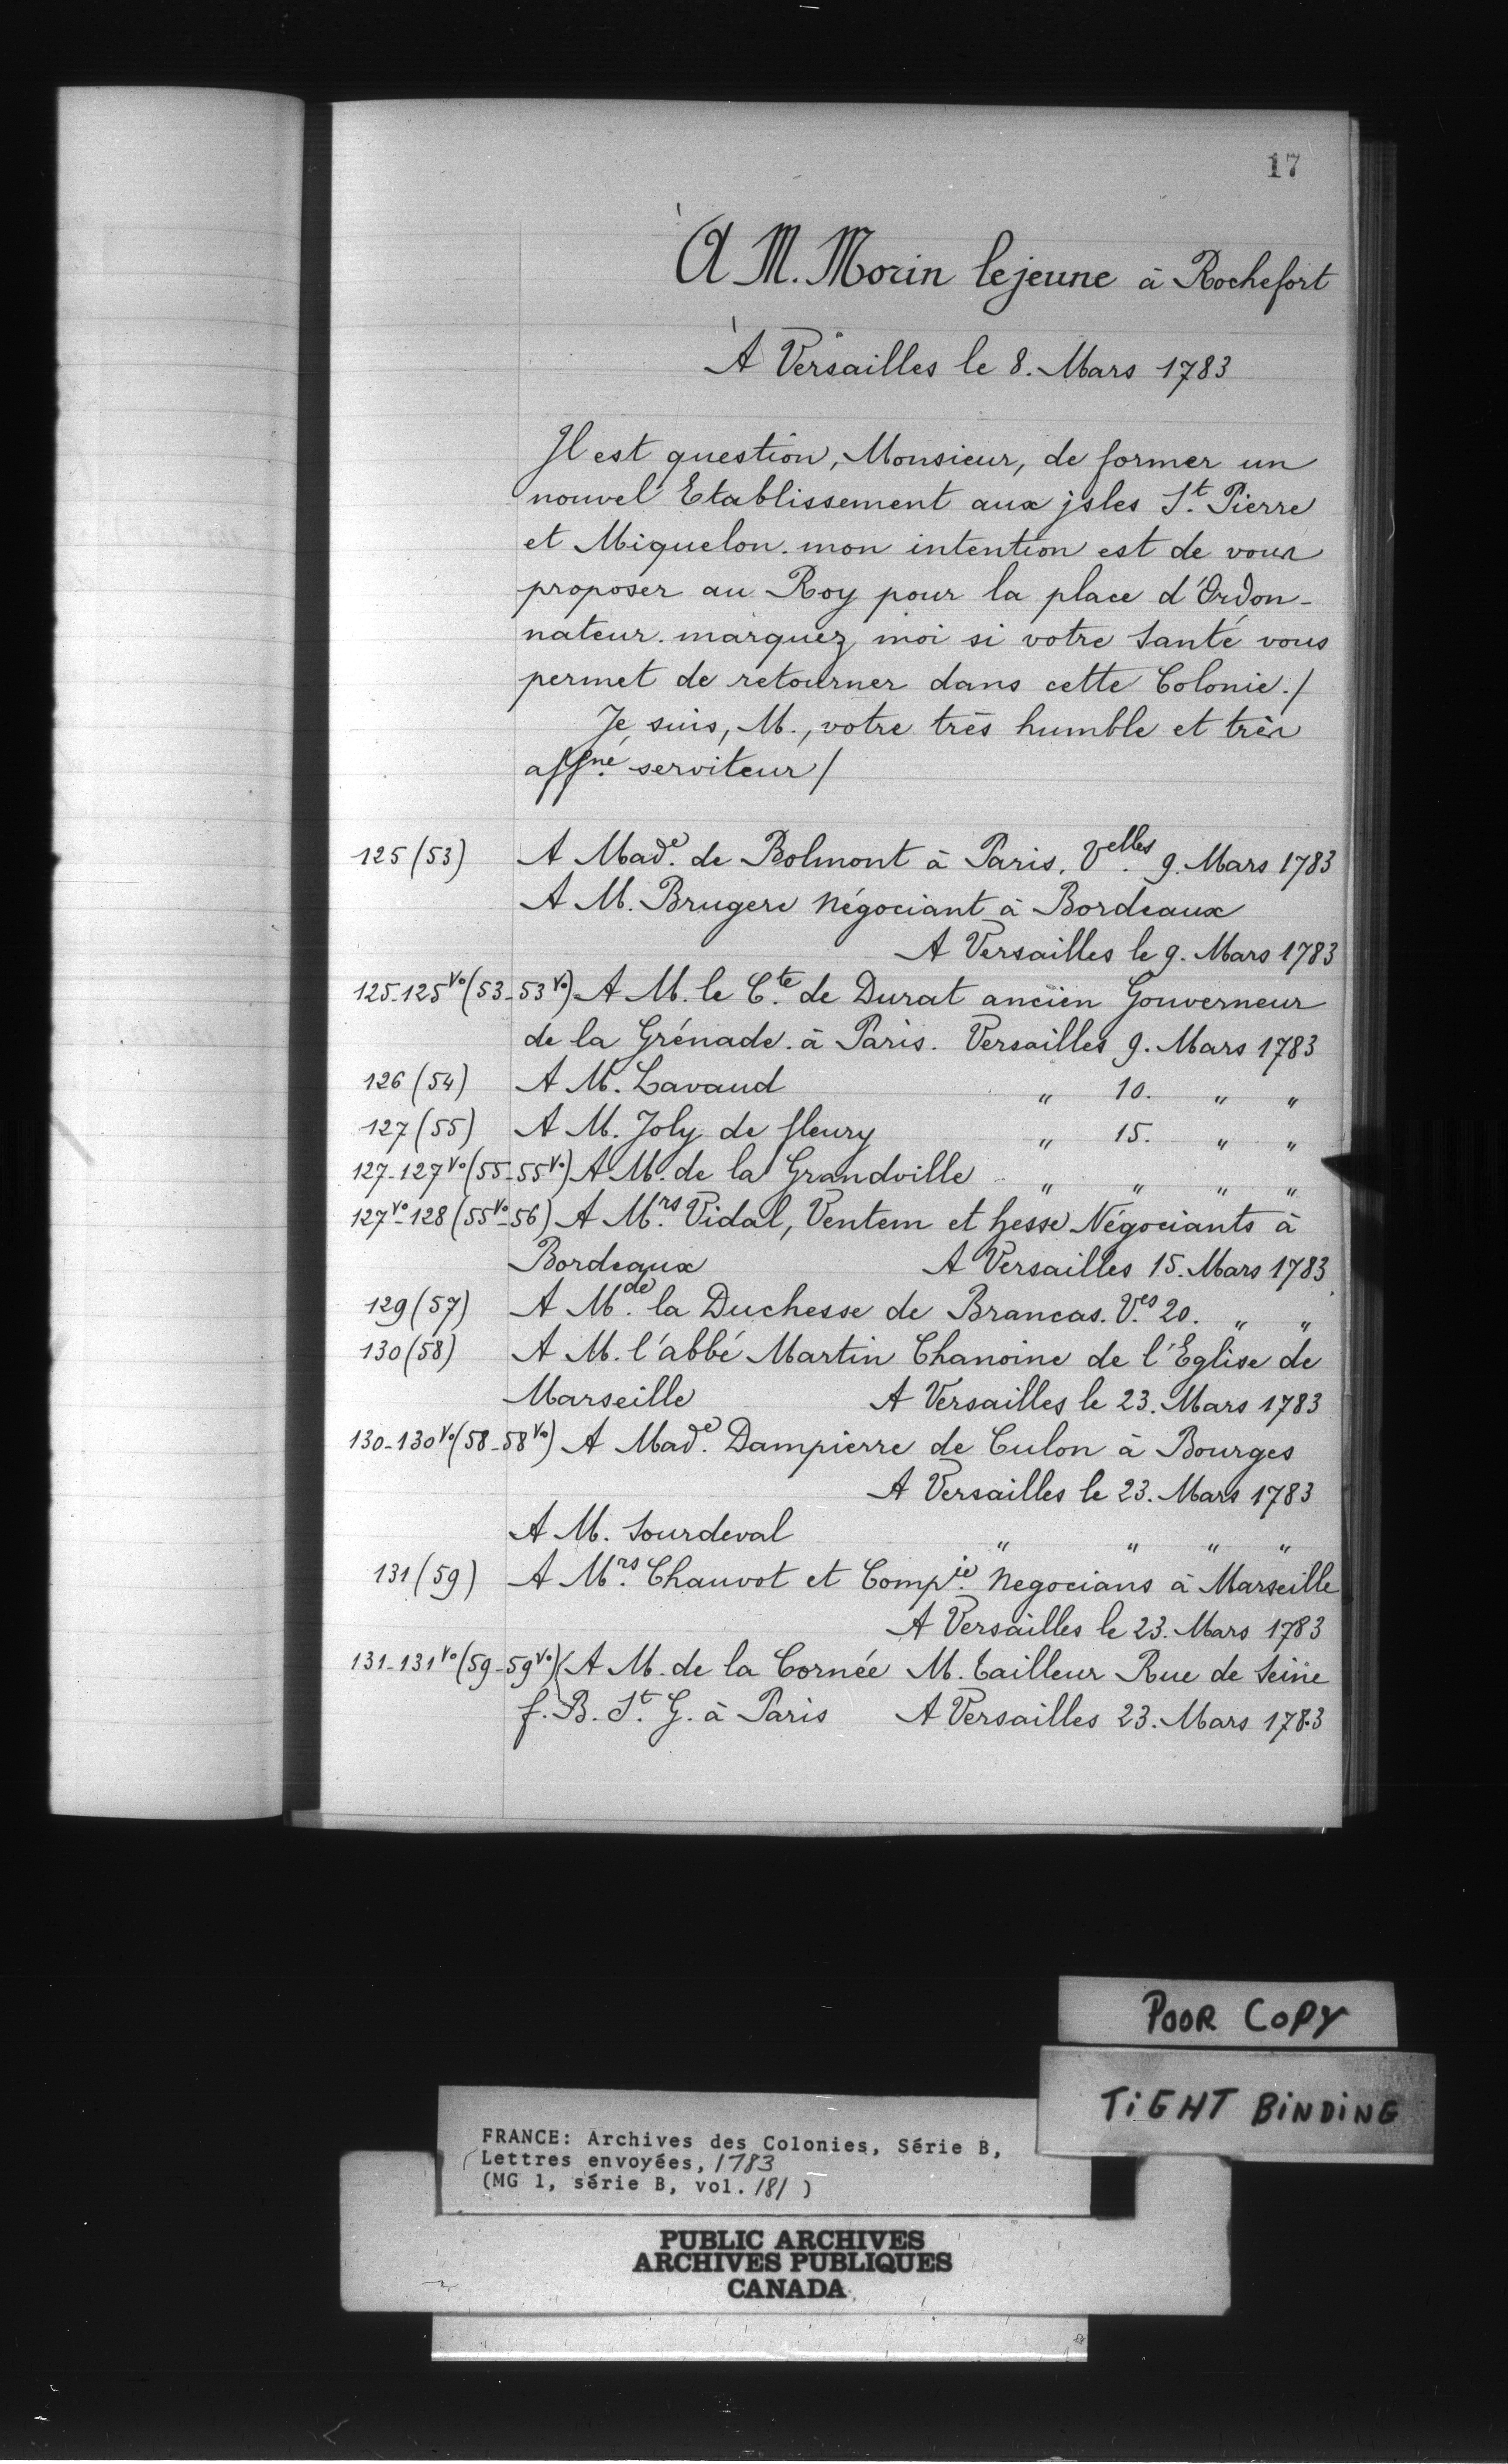 17
À M. Morin lejeune à Rochefort
À Versailles le 8. Mars 1783
Il est question, Monsieur, de former un
nouvel Etablissement aux jsles St. Pierre
et Miquelon. mon intention est de vous
proposer au Roy pour la place d'Ordon-
nateur. marquez moi si votre santé vous
permet de retourner dans cette Colonie./
Je suis, M., votre très humble et très
affné. serviteur/
125 (53) A Made. de Bolmont à Paris. Velles. 9. Mars 1783
A M. Brugere Négociant à Bordeaux
A Versailles le 9. Mars 1783
125-125vo (53-53vo) A M. le Cte. de Durat ancien Gouverneur
de la Grénade. à Paris. Versailles 9. Mars 1783
126 (54) A M. Lavaud " 10. " "
127 (55) A M. Joly de fleury " 15. " "
127-127vo (55-55vo) A M. de la Grandville " " " "
127vo-128 (55vo-56) A Mrs. Vidal, Ventem et hesse Négociants à
Bordeaux A Versailles 15. Mars 1783
129 (57) A Mde. la Duchesse de Brancas. Ves. 20. " "
130 (58) A M. l'abbé Martin Chanoine de l'Eglise de
Marseille A Versailles le 23. Mars 1783
130-130vo (58-58vo) A Made. Dampierre de Culon à Bourges
A Versailles le 23. Mars 1783
A M. Sourdeval " " " "
131 (59) A Mrs. Chauvot et Compie. Negocians à Marseille
A Versailles le 23. Mars 1783
131-131vo (59-59vo) (A M. de la Cornée M. tailleur Rue de Seine
f. B. St. G. à Paris A Versailles 23. Mars 1783
POOR COPY
TIGHT BINDING
FRANCE: Archives des Colonies, Série B,
Lettres envoyées, 1783
(MG 1, série B, vol. 181 )
PUBLIC ARCHIVES
ARCHIVES PUBLIQUES
CANADA